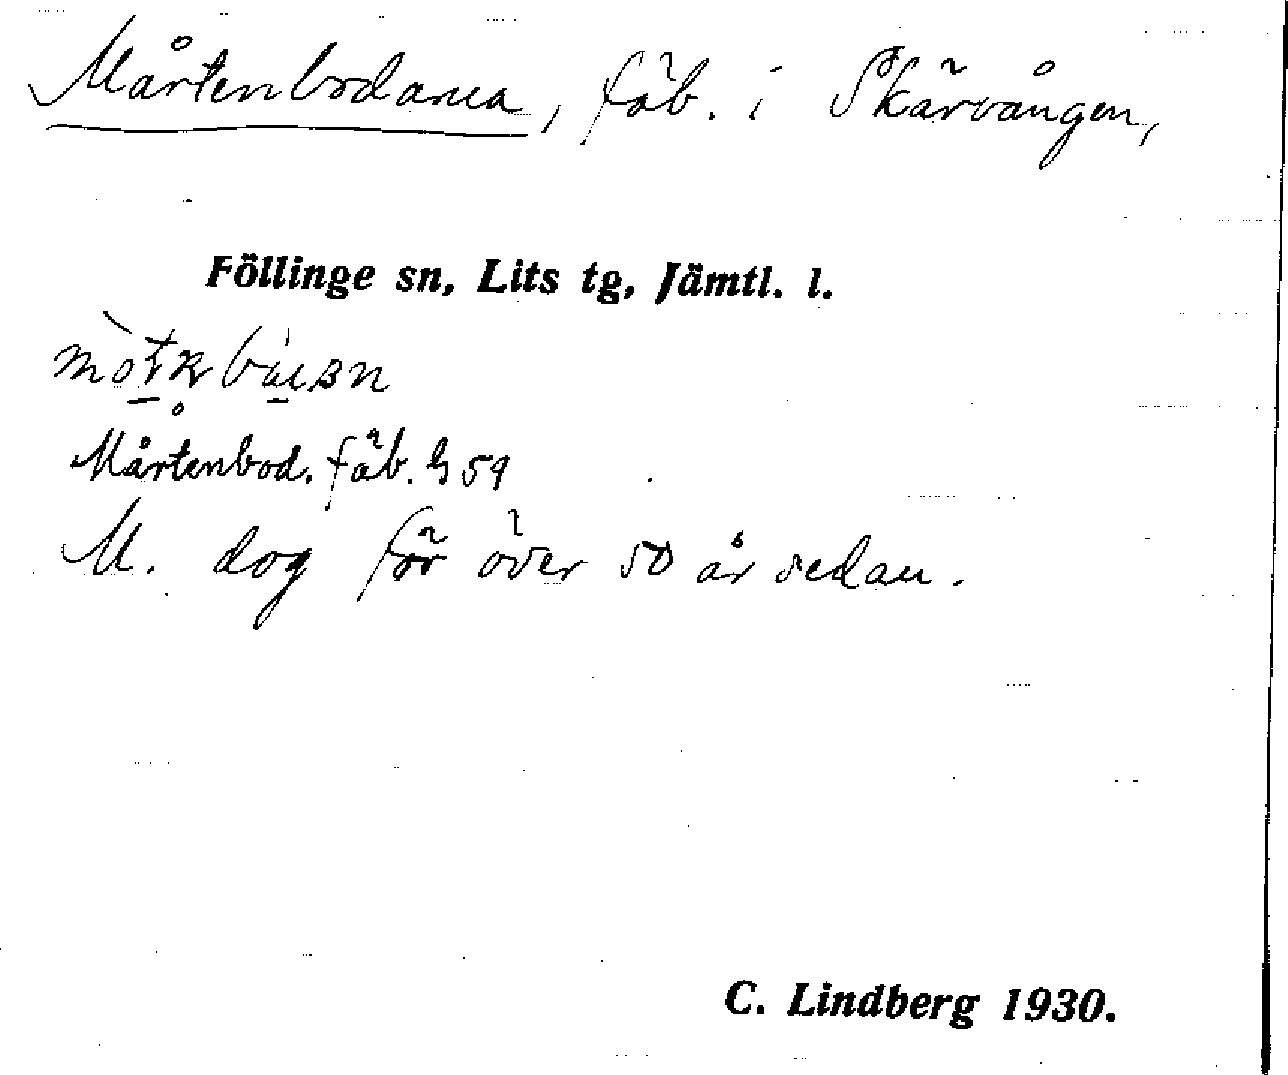 Mårtenbodarna, fäb. i Skärvången,
Föllinge sn, Lits tg, Jämtl. l.
Mårtenbod. fäb. G 59
M. dog för över 50 år sedan.
C. Lindberg 1930.